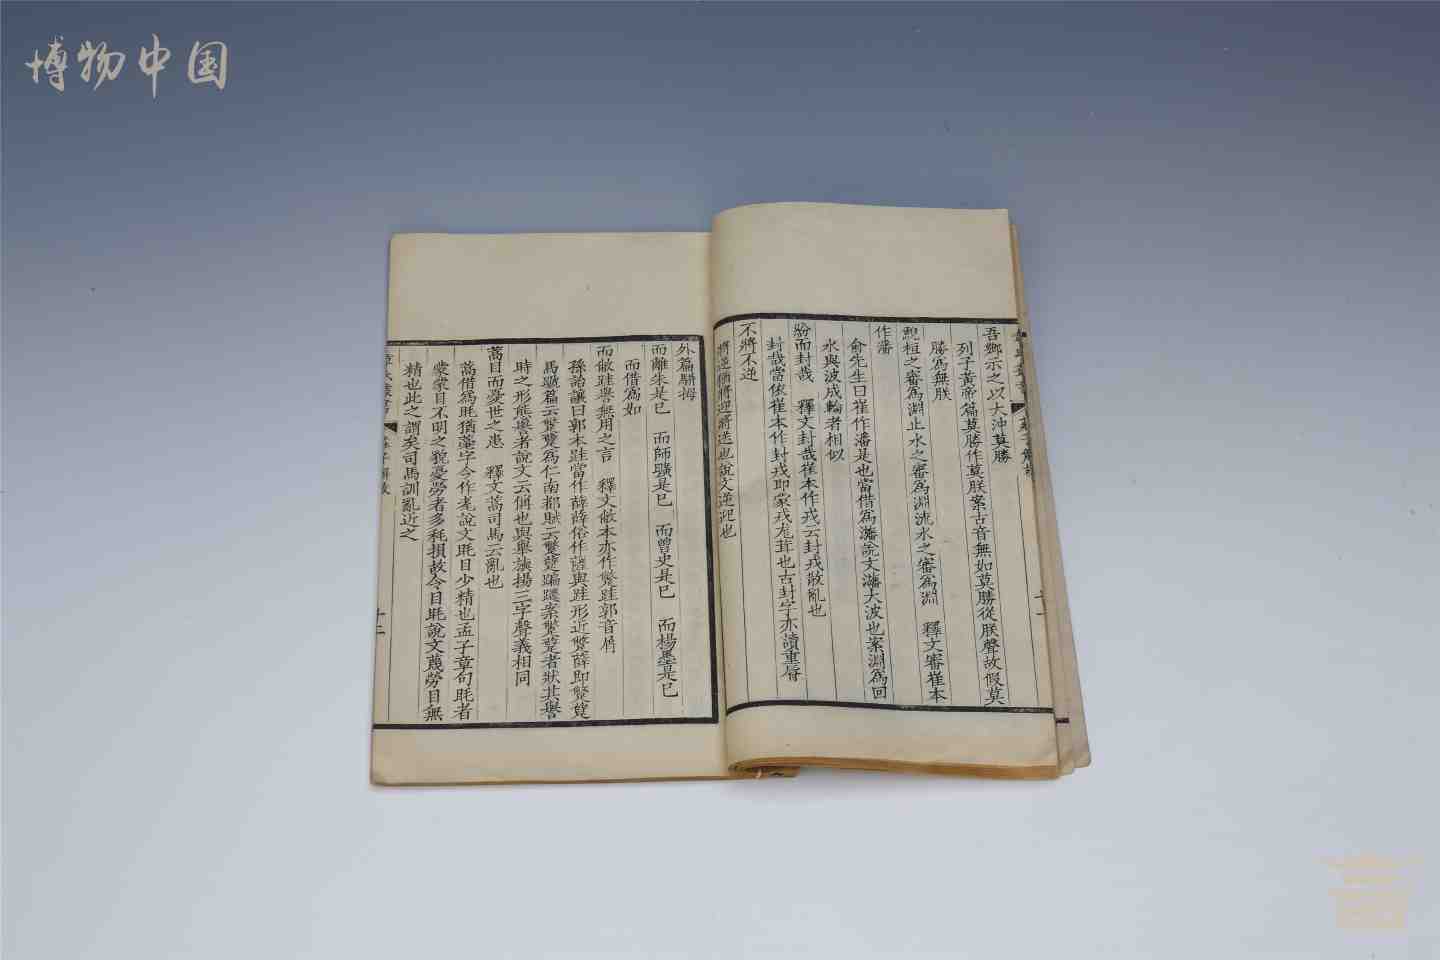 博物中国
吾鄉示之以大沖莫勝
列子黃帝篇莫勝作莫朕案古音無如莫勝從朕聲故假莫
勝爲無朕
鯢桓之審爲淵止水之審爲淵流水之審爲淵　釋文審崔本
作潘
俞先生曰崔作潘是也當借爲瀋說文瀋大波也案淵爲回
水與波成輪者相似
紛而封哉　釋文封哉崔本作戎云封戎散亂也
封哉當依崔本作封戎即蒙戎尨茸也古封字亦讀重脣
不將不逆
將逆猶將迎將送也說文逆迎也
外篇駢拇
而離朱是已　而師曠是已　而曾史是已　而楊墨是已
而借爲如
而敝跬譽無用之言　釋文敝本亦作蹩跬郭音屑
孫詒讓曰郭本跬當作薛薛俗作薩與跬形近蹩薛即蹩躠
馬蹏篇云蹩躠爲仁南都賦云蹩躠蹁躚案蹩躠者狀其譽
時之形態譽者說文云偁也與舉㩗揚三字聲義相同
蒿目而憂世之患　釋文蒿司馬云亂也
蒿借爲眊猶薹字今作耄說文眊目少精也孟子章句眊者
蒙蒙目不明之貌憂勞者多秏損故令目眊說文蔑勞目無
精也此之謂矣司馬訓亂近之
章氏叢書　莊子解故　十二